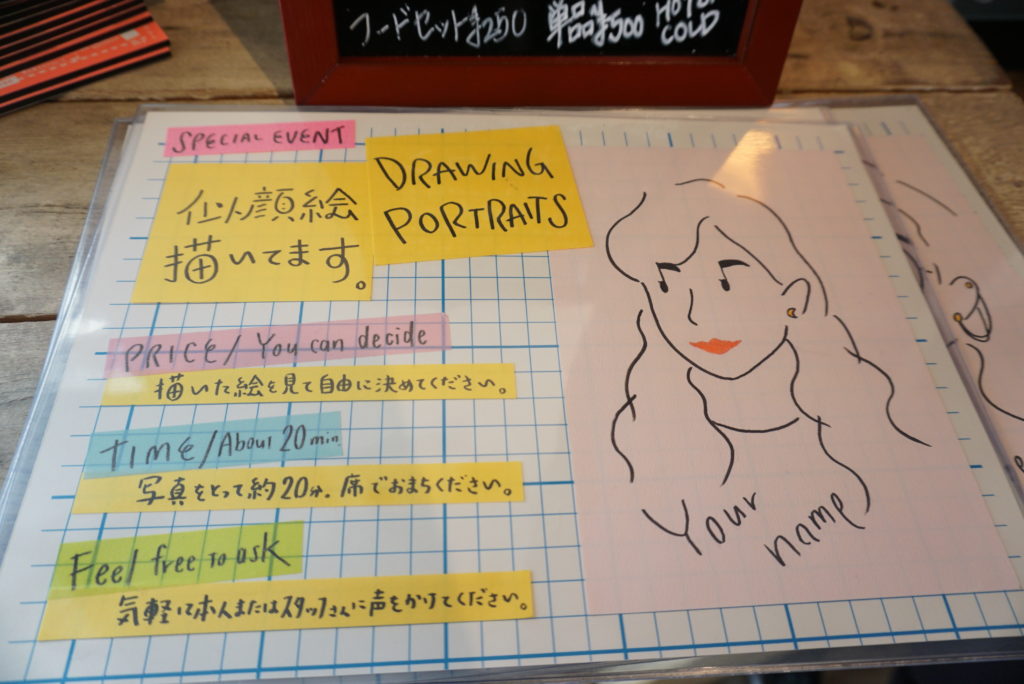 フードセット¥250 単品¥500 HOT or COLD
SPECIAL EVENT
似顔絵
描いてます。
DRAWING
PORTRAITS
PRICE/ You can decide
描いた絵を見て自由に決めてください。
TIME/About 20 min.
写真をとって約20分、席でおまちください。
Feel free to ask
気軽に本人またはスタッフさんに声をかけてください。
Your
name